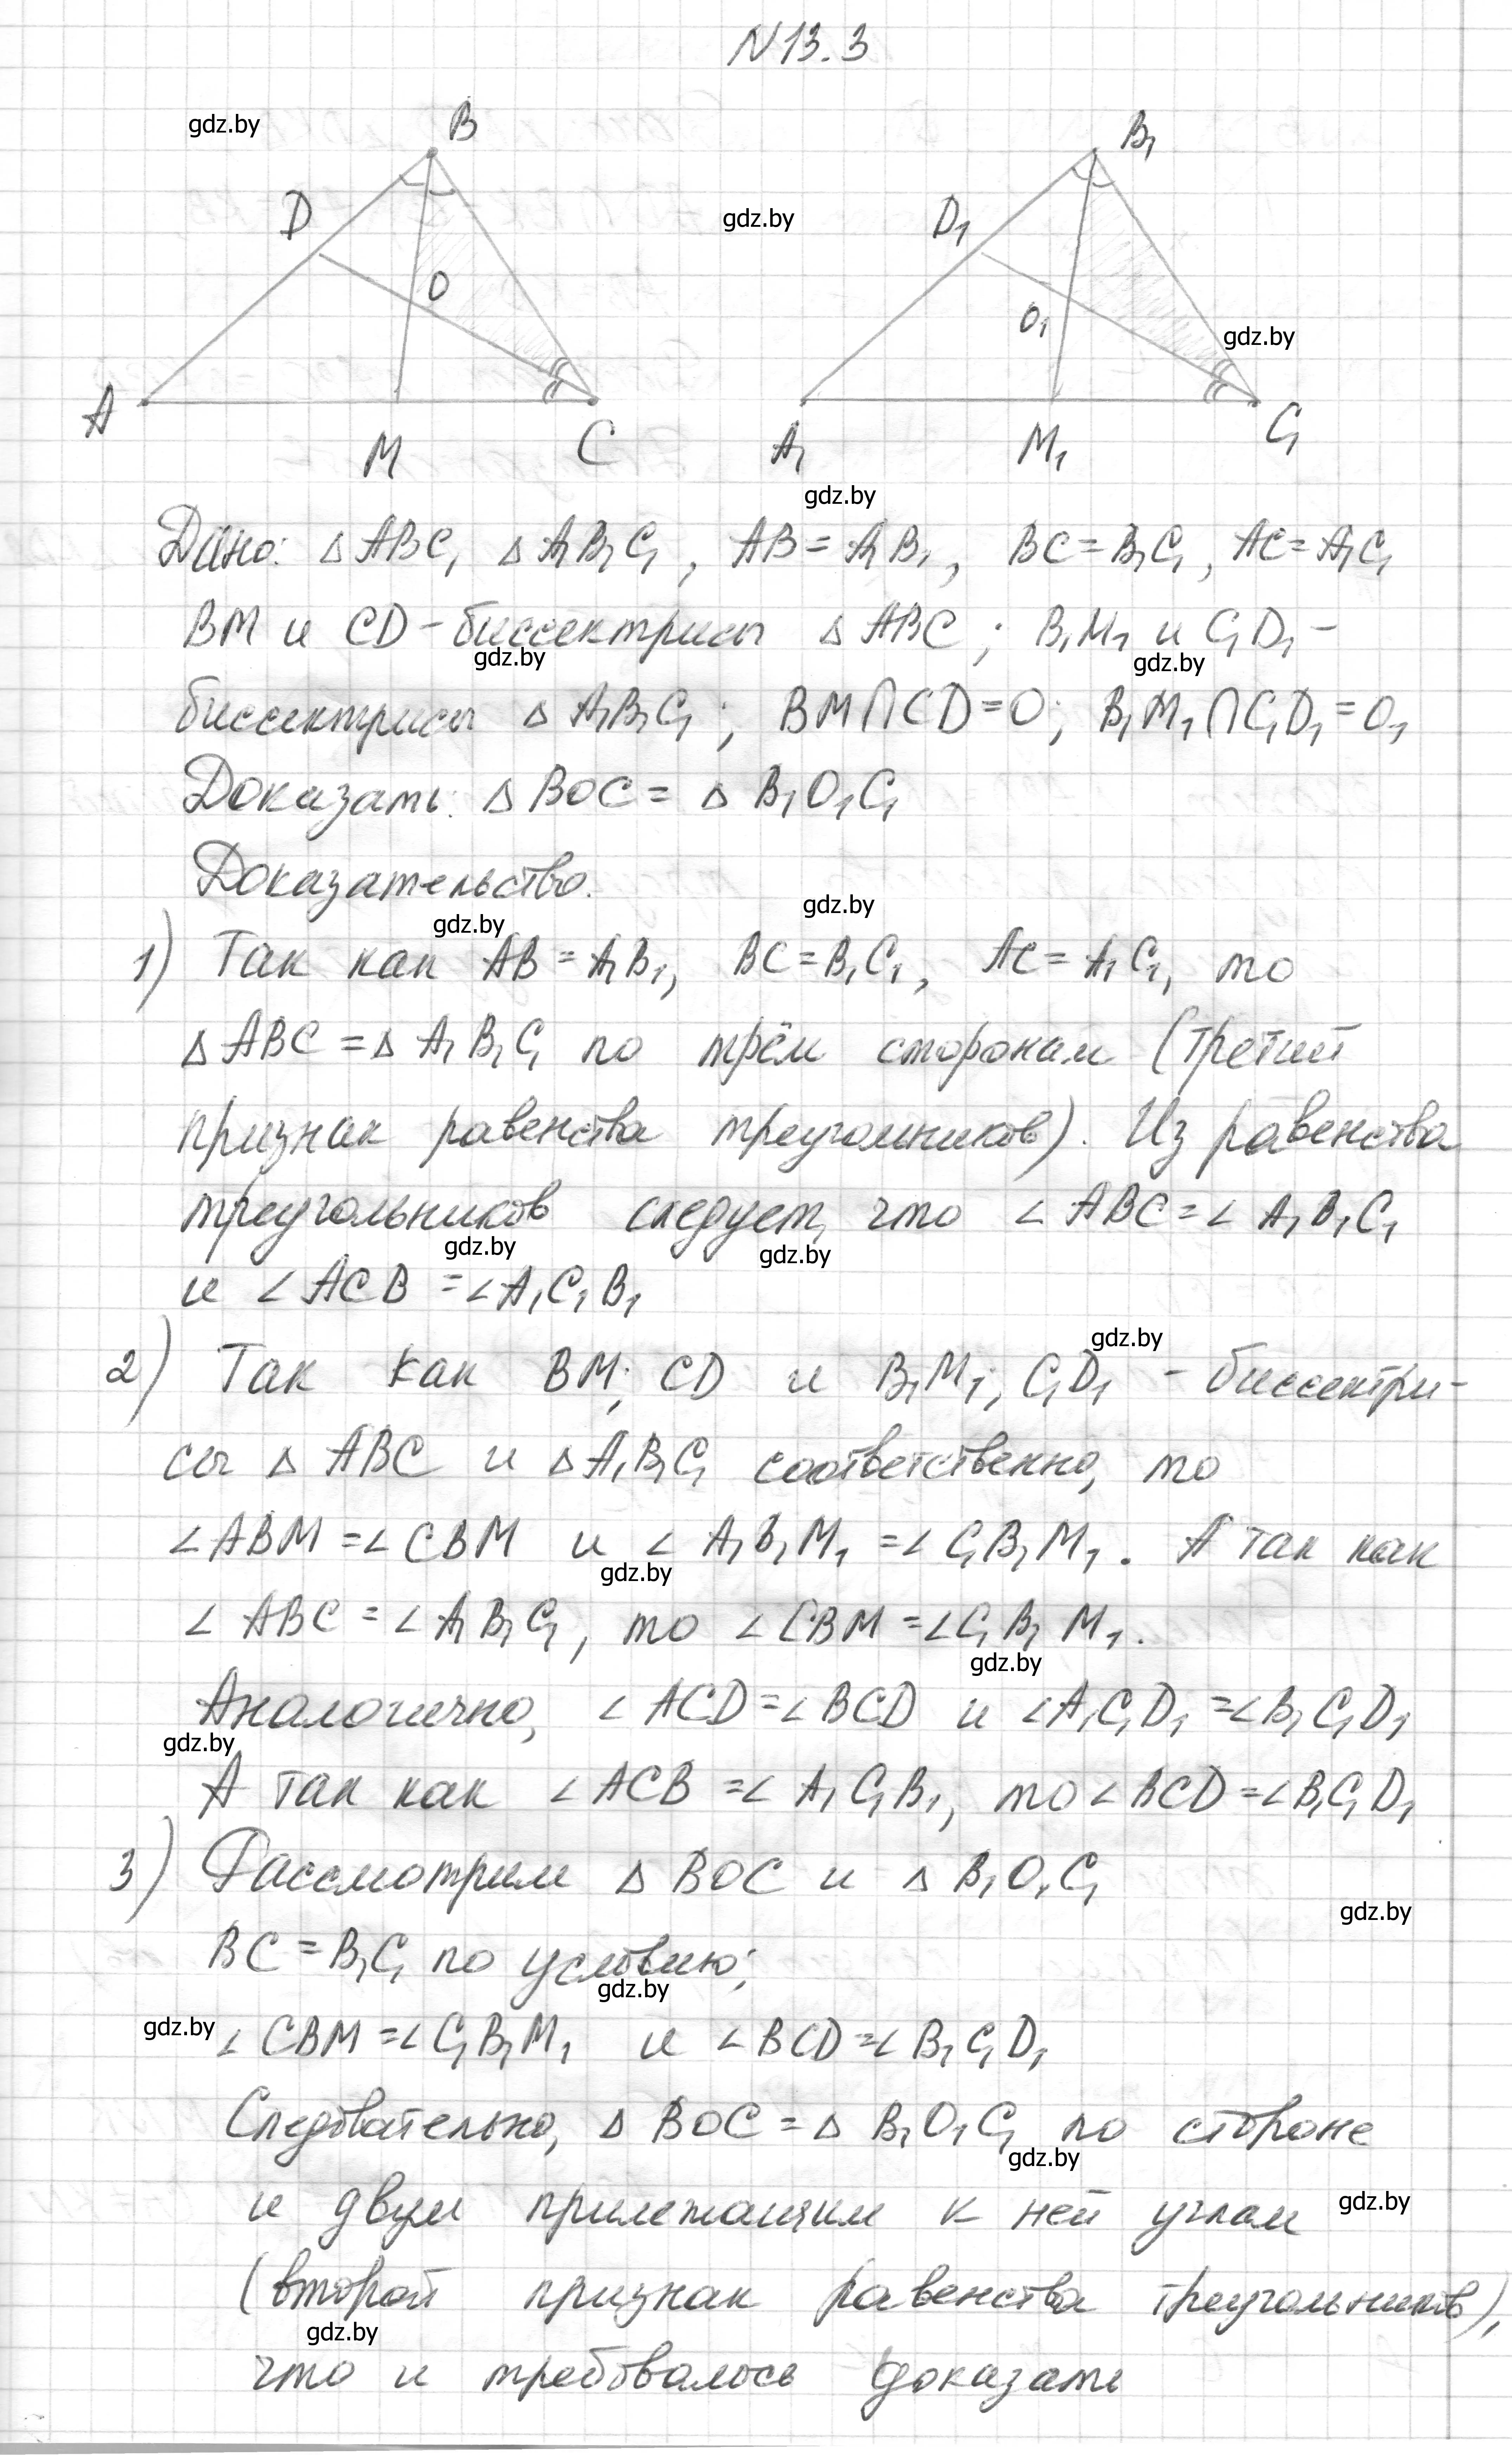 N13.3
gdz.by
B
B₁
D
gdz.by
D₁
O
O₁
gdz.by
A
M
C
A₁
M₁
C₁
gdz.by
Дано: △ABC, △A₁B₁C₁, AB=A₁B₁, BC=B₁C₁, AC=A₁C₁
BM и CD-биссектрисы △ABC; B₁M₁ и C₁D₁-
gdz.by
gdz.by
биссектрисы △A₁B₁C₁; BM∩CD=O; B₁M₁∩C₁D₁=O₁
Доказать: △BOC=△B₁O₁C₁
Доказательство.
gdz.by
gdz.by
1) Так как AB=A₁B₁, BC=B₁C₁, AC=A₁C₁, то
△ABC=△A₁B₁C₁ по трём сторонам (третий
признак равенства треугольников). Из равенства
треугольников следует, что ∠ABC=∠A₁B₁C₁
gdz.by
gdz.by
и ∠ACB=∠A₁C₁B₁
gdz.by
2) Так как BM; CD и B₁M₁; C₁D₁ - биссектри-
сы △ABC и △A₁B₁C₁ соответственно, то
∠ABM=∠CBM и ∠A₁B₁M₁=∠C₁B₁M₁. А так как
gdz.by
∠ABC=∠A₁B₁C₁, то ∠CBM=∠C₁B₁M₁.
gdz.by
Аналогично, ∠ACD=∠BCD и ∠A₁C₁D₁=∠B₁C₁D₁
gdz.by
А так как ∠ACB=∠A₁C₁B₁, то ∠BCD=∠B₁C₁D₁
3) Рассмотрим △BOC и △B₁O₁C₁
gdz.by
BC=B₁C₁ по условию;
gdz.by
gdz.by
∠CBM=∠C₁B₁M₁ и ∠BCD=∠B₁C₁D₁
Следовательно, △BOC=△B₁O₁C₁ по стороне
gdz.by
и двум прилежащим к ней углам
gdz.by
(второй признак равенства треугольников),
gdz.by
что и требовалось доказать